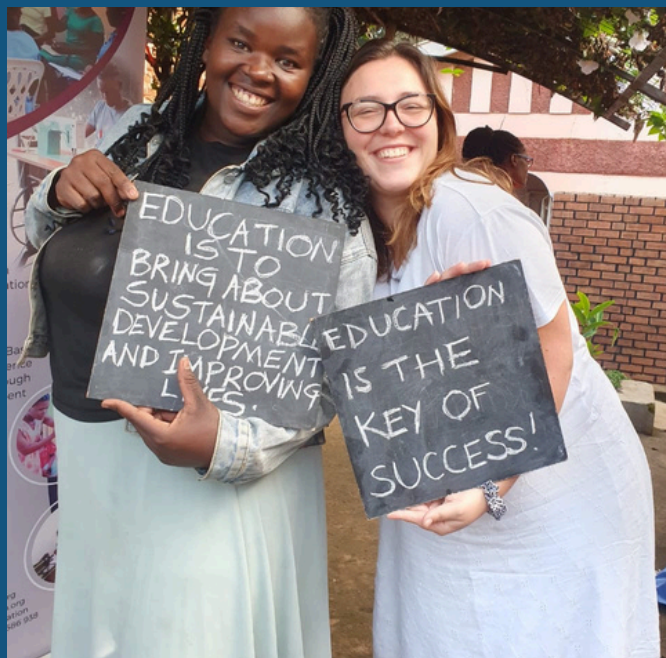 EDUCATION
IS TO
BRING ABOUT
SUSTAINABL
DEVELOPMENT
AND IMPROVING
EDUCATION
IS THE
KEY OF
SUCCESS!